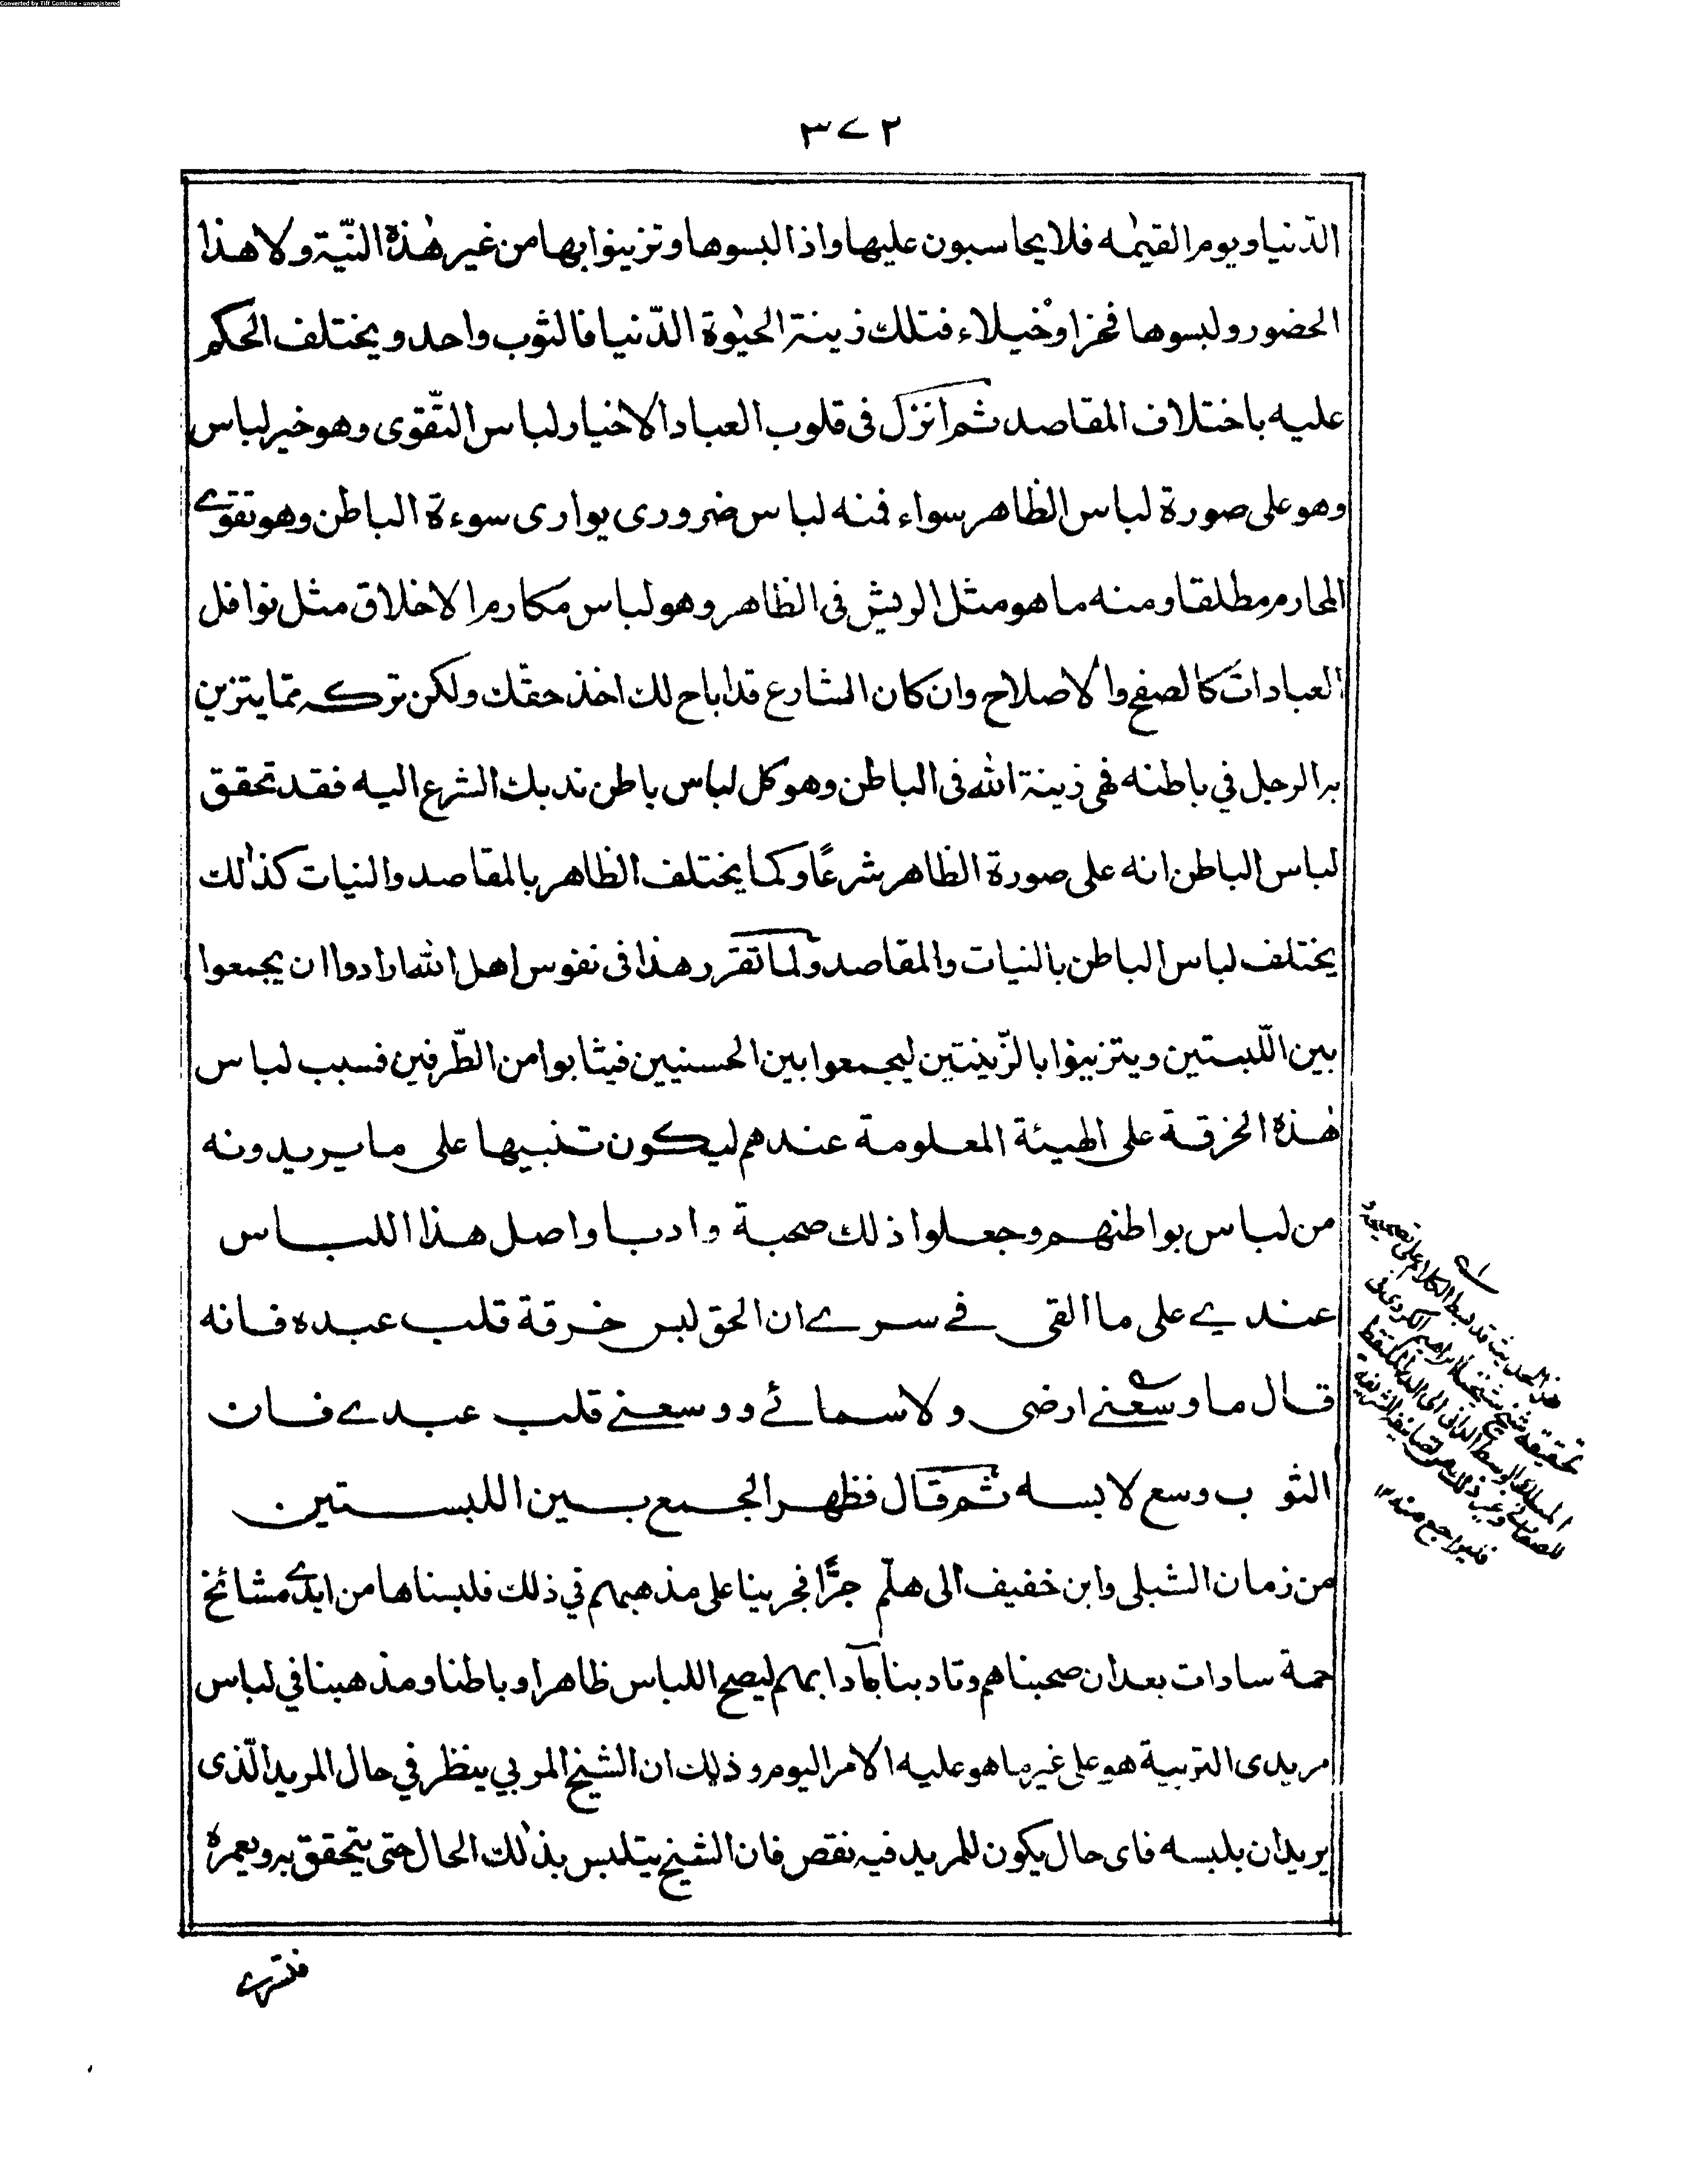 Converted by Tiff Combine - unregistered
٣٧٢
الدّنيا ويوم القيٰمه فلا يحاسبون عليها واذا لبسوها وتزينوا بها من غير هٰذه النّية ولا هذا
الحضور ولبسوها فخرا وخيلاء فتلك زينة الحيٰوة الدّنيا فالثوب واحد ويختلف الحكم
عليه باختلاف المقاصد ثم انزل فى قلوب العباد الاخيار لباس التّقوى وهو خير لباس
وهو على صورة لباس الظاهر سواء فمنه لباس ضرورى يوارى سوءة الباطن وهو تقوے
المحارم مطلقا ومنه ما هو مثل الريش فى الظاهر وهو لباس مكارم الاخلاق مثل نوافل
العبادات كالصفح والاصلاح وان كان الشارع قد اباح لك اخذ حقك ولكن تركه ممّا يتزين
به الرجل في باطنه فهى زينة الله فى الباطن وهو كل لباس باطن ندبك الشرع اليه فقد تحقق
لباس الباطن انه على صورة الظاهر شرعًا وكما يختلف الظاهر بالمقاصد والنيات كذٰلك
يختلف لباس الباطن بالنيات والمقاصد ولما تقرر هذا فى نفوس اهل الله ارادوا ان يجمعوا
بين اللّبستين ويتزينوا بالزّينتين ليجمعوا بين الحسنيين فيثابوا من الطّرفين فسبب لباس
هٰذه الخرقة على الهيئة المعلومة عندهم ليكون تنبيها على ما يريدونه
من لباس بواطنهم وجعلوا ذلك صحبة وادبا واصل هذا اللباس
عندي على ما القى فے سرے ان الحق لبس خرقة قلب عبده فانه
قال ما وسعنے ارضى ولا سمائے ووسعنے قلب عبدے فان
الثوب وسع لابسه ثم قال فظهر الجمع بين اللبستين
من زمان الشبلى وابن خفيف الى هلّم جرًّا فجرينا على مذهبهم في ذلك فلبسناها من ايدى مشائخ
جمة سادات بعد ان صحبناهم وتادبنا بآدابهم ليصح اللباس ظاهرا وباطنا ومذهبنا في لباس
مريدى التربية هو على غير ما هو عليه الامر اليوم وذلك ان الشيخ المربي ينظر في حال المريد الّذى
يريد ان يلبسه فاى حال يكون للمريد فيه نقص فان الشيخ يتلبس بذٰلك الحال حتى يتحقق به ويعمره
هذا الحديث قد بسط الكلام على تصحيحه و
تحقيقه شيخ شيخنا ابراهيم الكردى فى
فليراجع منه ١٢